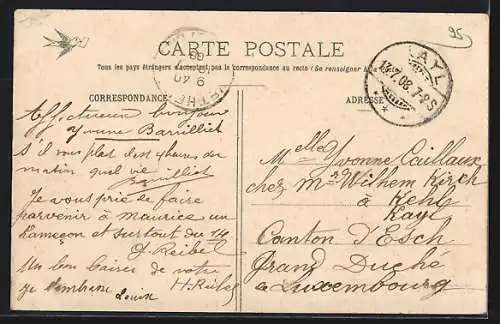 95
CARTE POSTALE
Tous les pays étrangers n'acceptent pas la correspondance au recto (Se renseigner à la Poste)
CORRESPONDANCE
ADRESSE
KAYL
13.7.08. 7-8 S
Affectueux bonjour
Yvonne Barrilliet
S'il vous plait
matin quel vie
Barrilliet
Je vous prie de faire
parvenir à Maurice un
hameçon et surtout du
J. Reibel
Un bon baiser de votre
H. Reibel
Louise
Melle Yvonne Caillaux
chez Mr Wilhem Kirch
à Kehl
Kayl
Canton d'Esch
Grand Duché
de Luxembourg